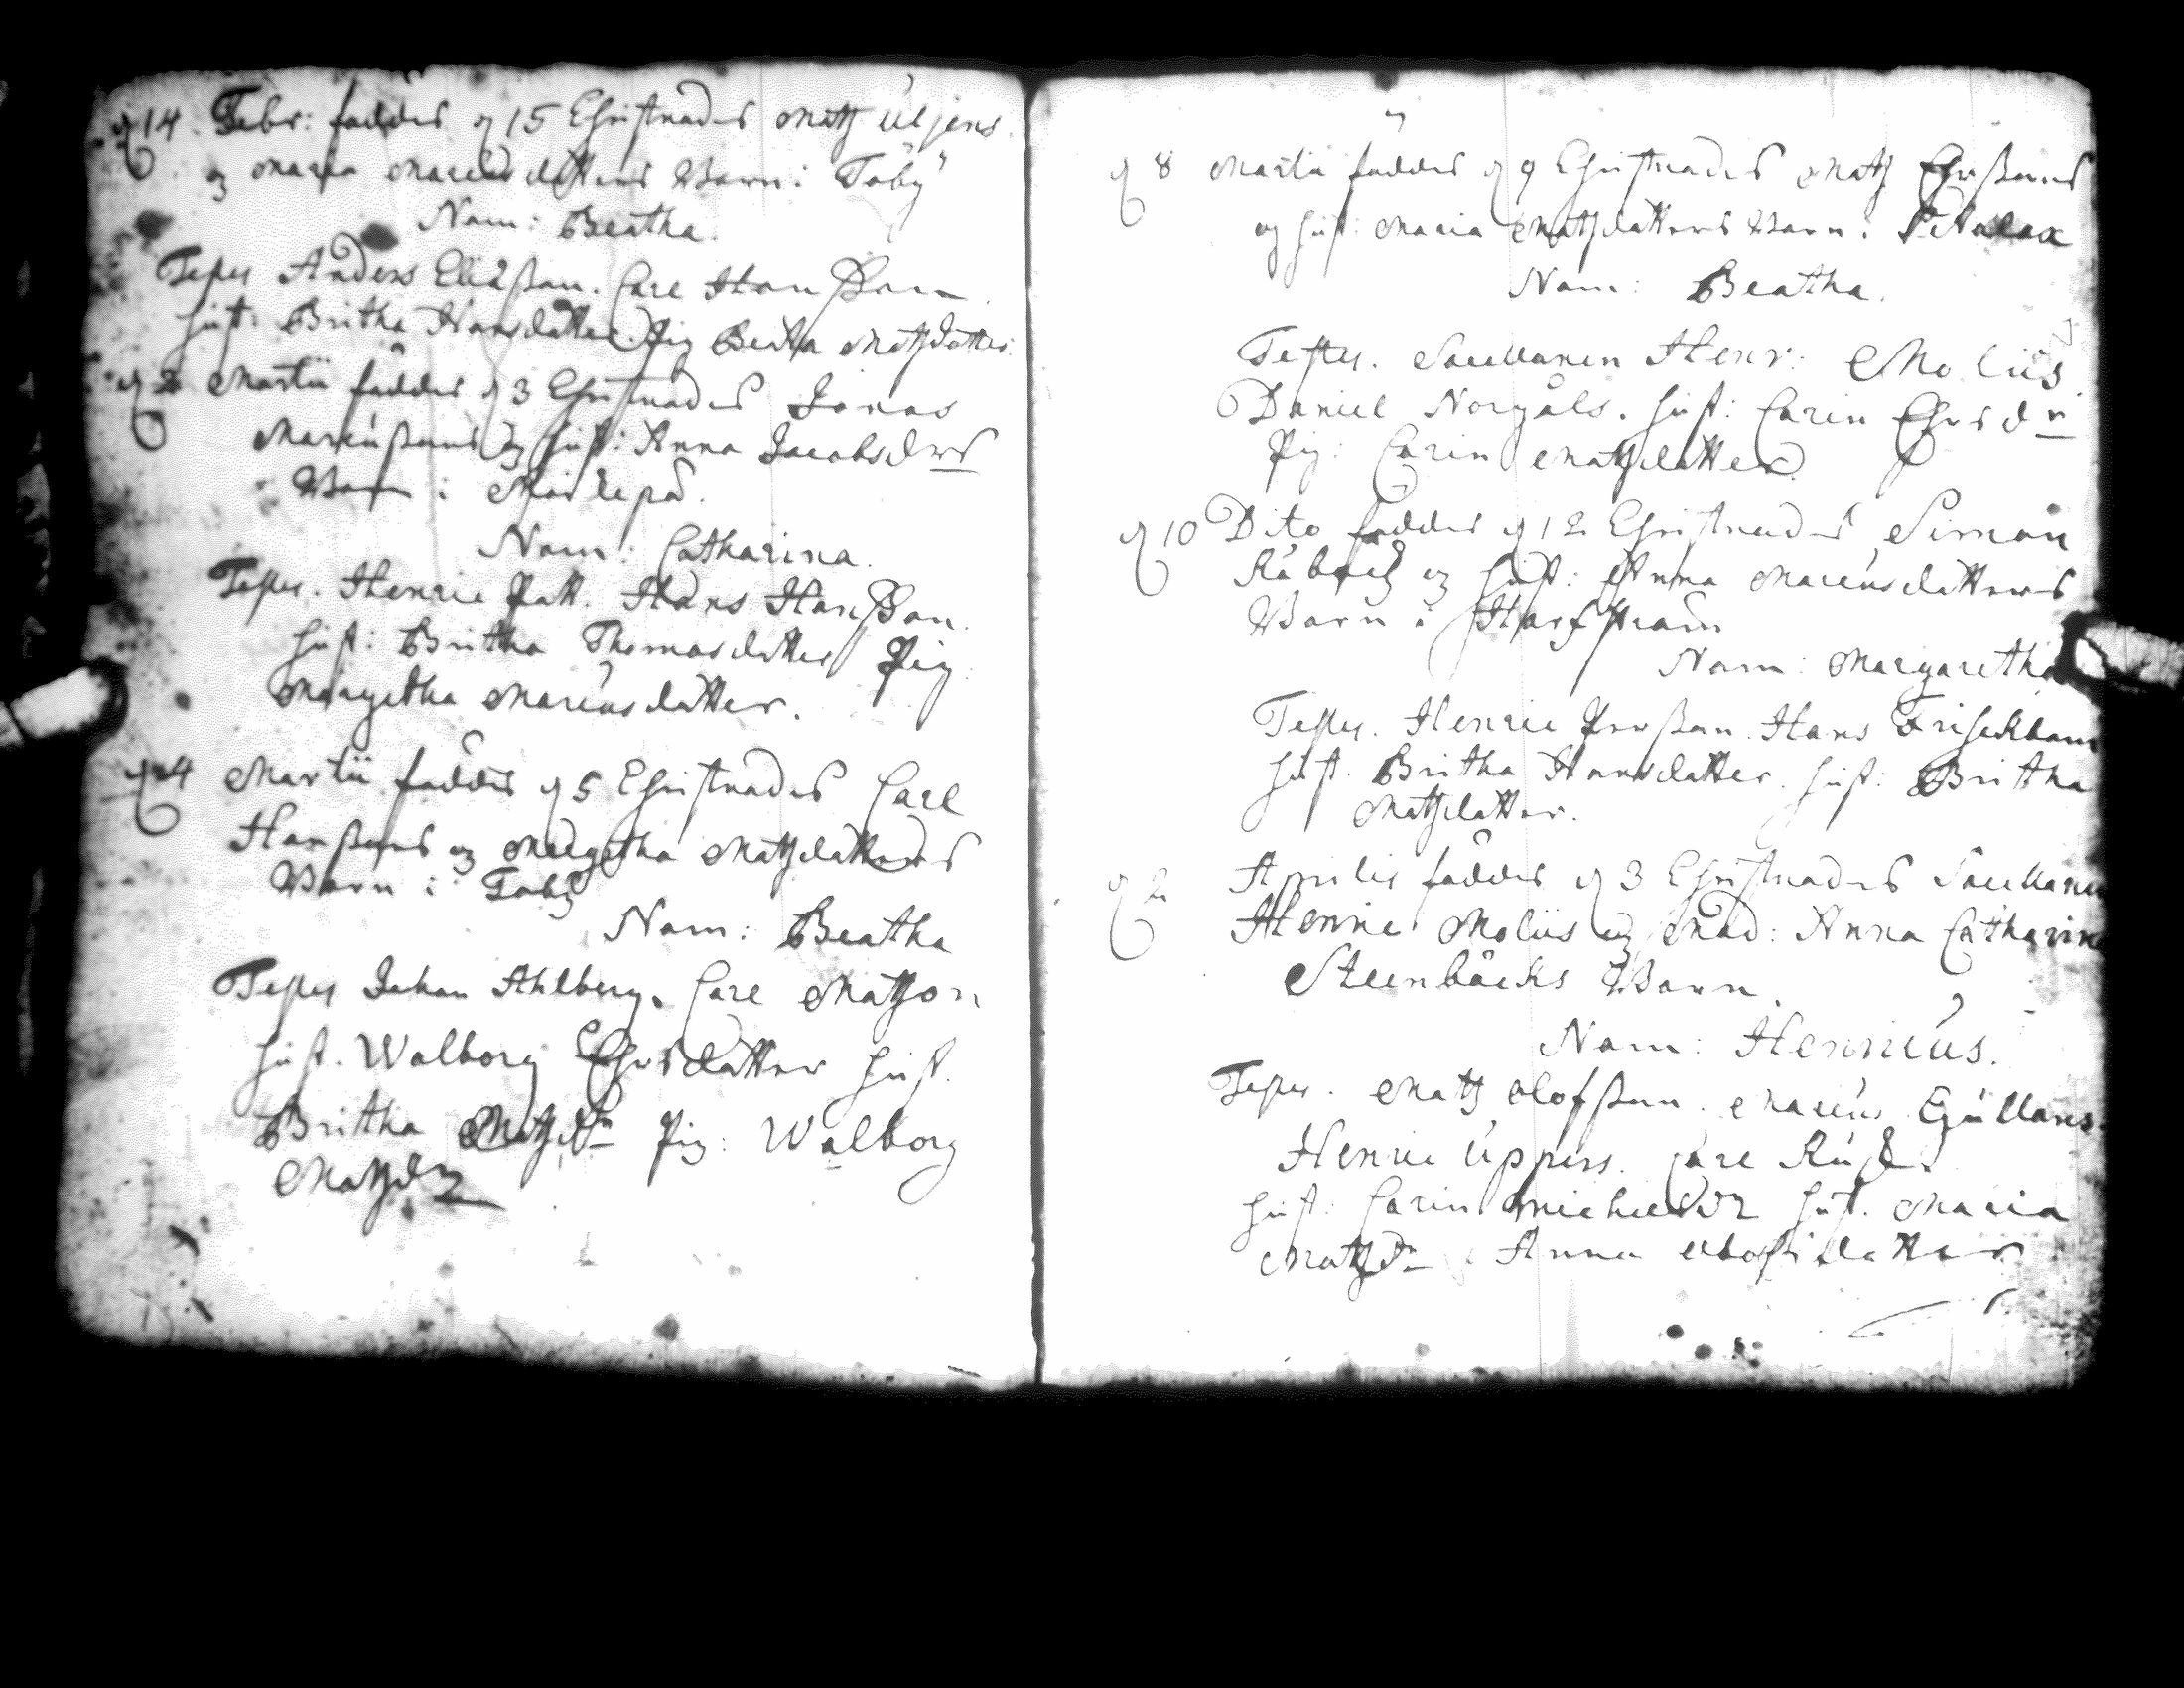 d 14 Febr: föddes d 15 Christnades Matz Uljens
og Maria Marcusdotters Barn i Toby
Nom: Beatha.
Testes Anders Eliæsson. Carl Hansson
hust: Britha Hansdotter. Pig Beata Matzdotter.
d 2 Martii föddes d 3 Christnades Jonas
Marcussons og hust: Anna Jacobsdrs
Barn i
Nom: Catharina.
Testes. Henric Patt. Hans Hansson.
hust: Britha Thomasdotter Pig:
Margetha Marcusdotter.
d 4 Martii föddes d 5 Christnades Carl
Hanssons og Margetha Matzdotters
Barn i Toby
Nom: Beatha
Testes Johan Ahlberg. Carl Matzon
hust. Walborg Chrsdotter hust.
Britha Matzdr Pig: Walborg
Matzdr
d 8 Martii föddes d 9 Christnades Matz Ehrssons
og hust: Maria Matzdotters Barn i
Nom: Beatha.
Testes. Sacellanen Henr: Molius
Daniel Norgåls. hust: Carin Ehrsdr
Pig: Carin Matzdotter
d 10 Dito föddes d 12 Christnades Simon
Råback og hust: Anna Marcusdotters
Barn i Harfström
Nom: Margaretha
Testes. Henric Persson. Hans
hust. Britha Hansdotter. hust: Britha
Matzdotter.
d 2 Aprilis föddes d 3 Christnades Sacellanen
Henric Molius og Mad: Anna Catharina
Steenbäcks Barn.
Nom: Henricus.
Testes. Matz Olofsson. Marcus
Henric Uppers. Carl
hust: Carin Michelsdr hust. Maria
Matzdr Anna Olofsdotter